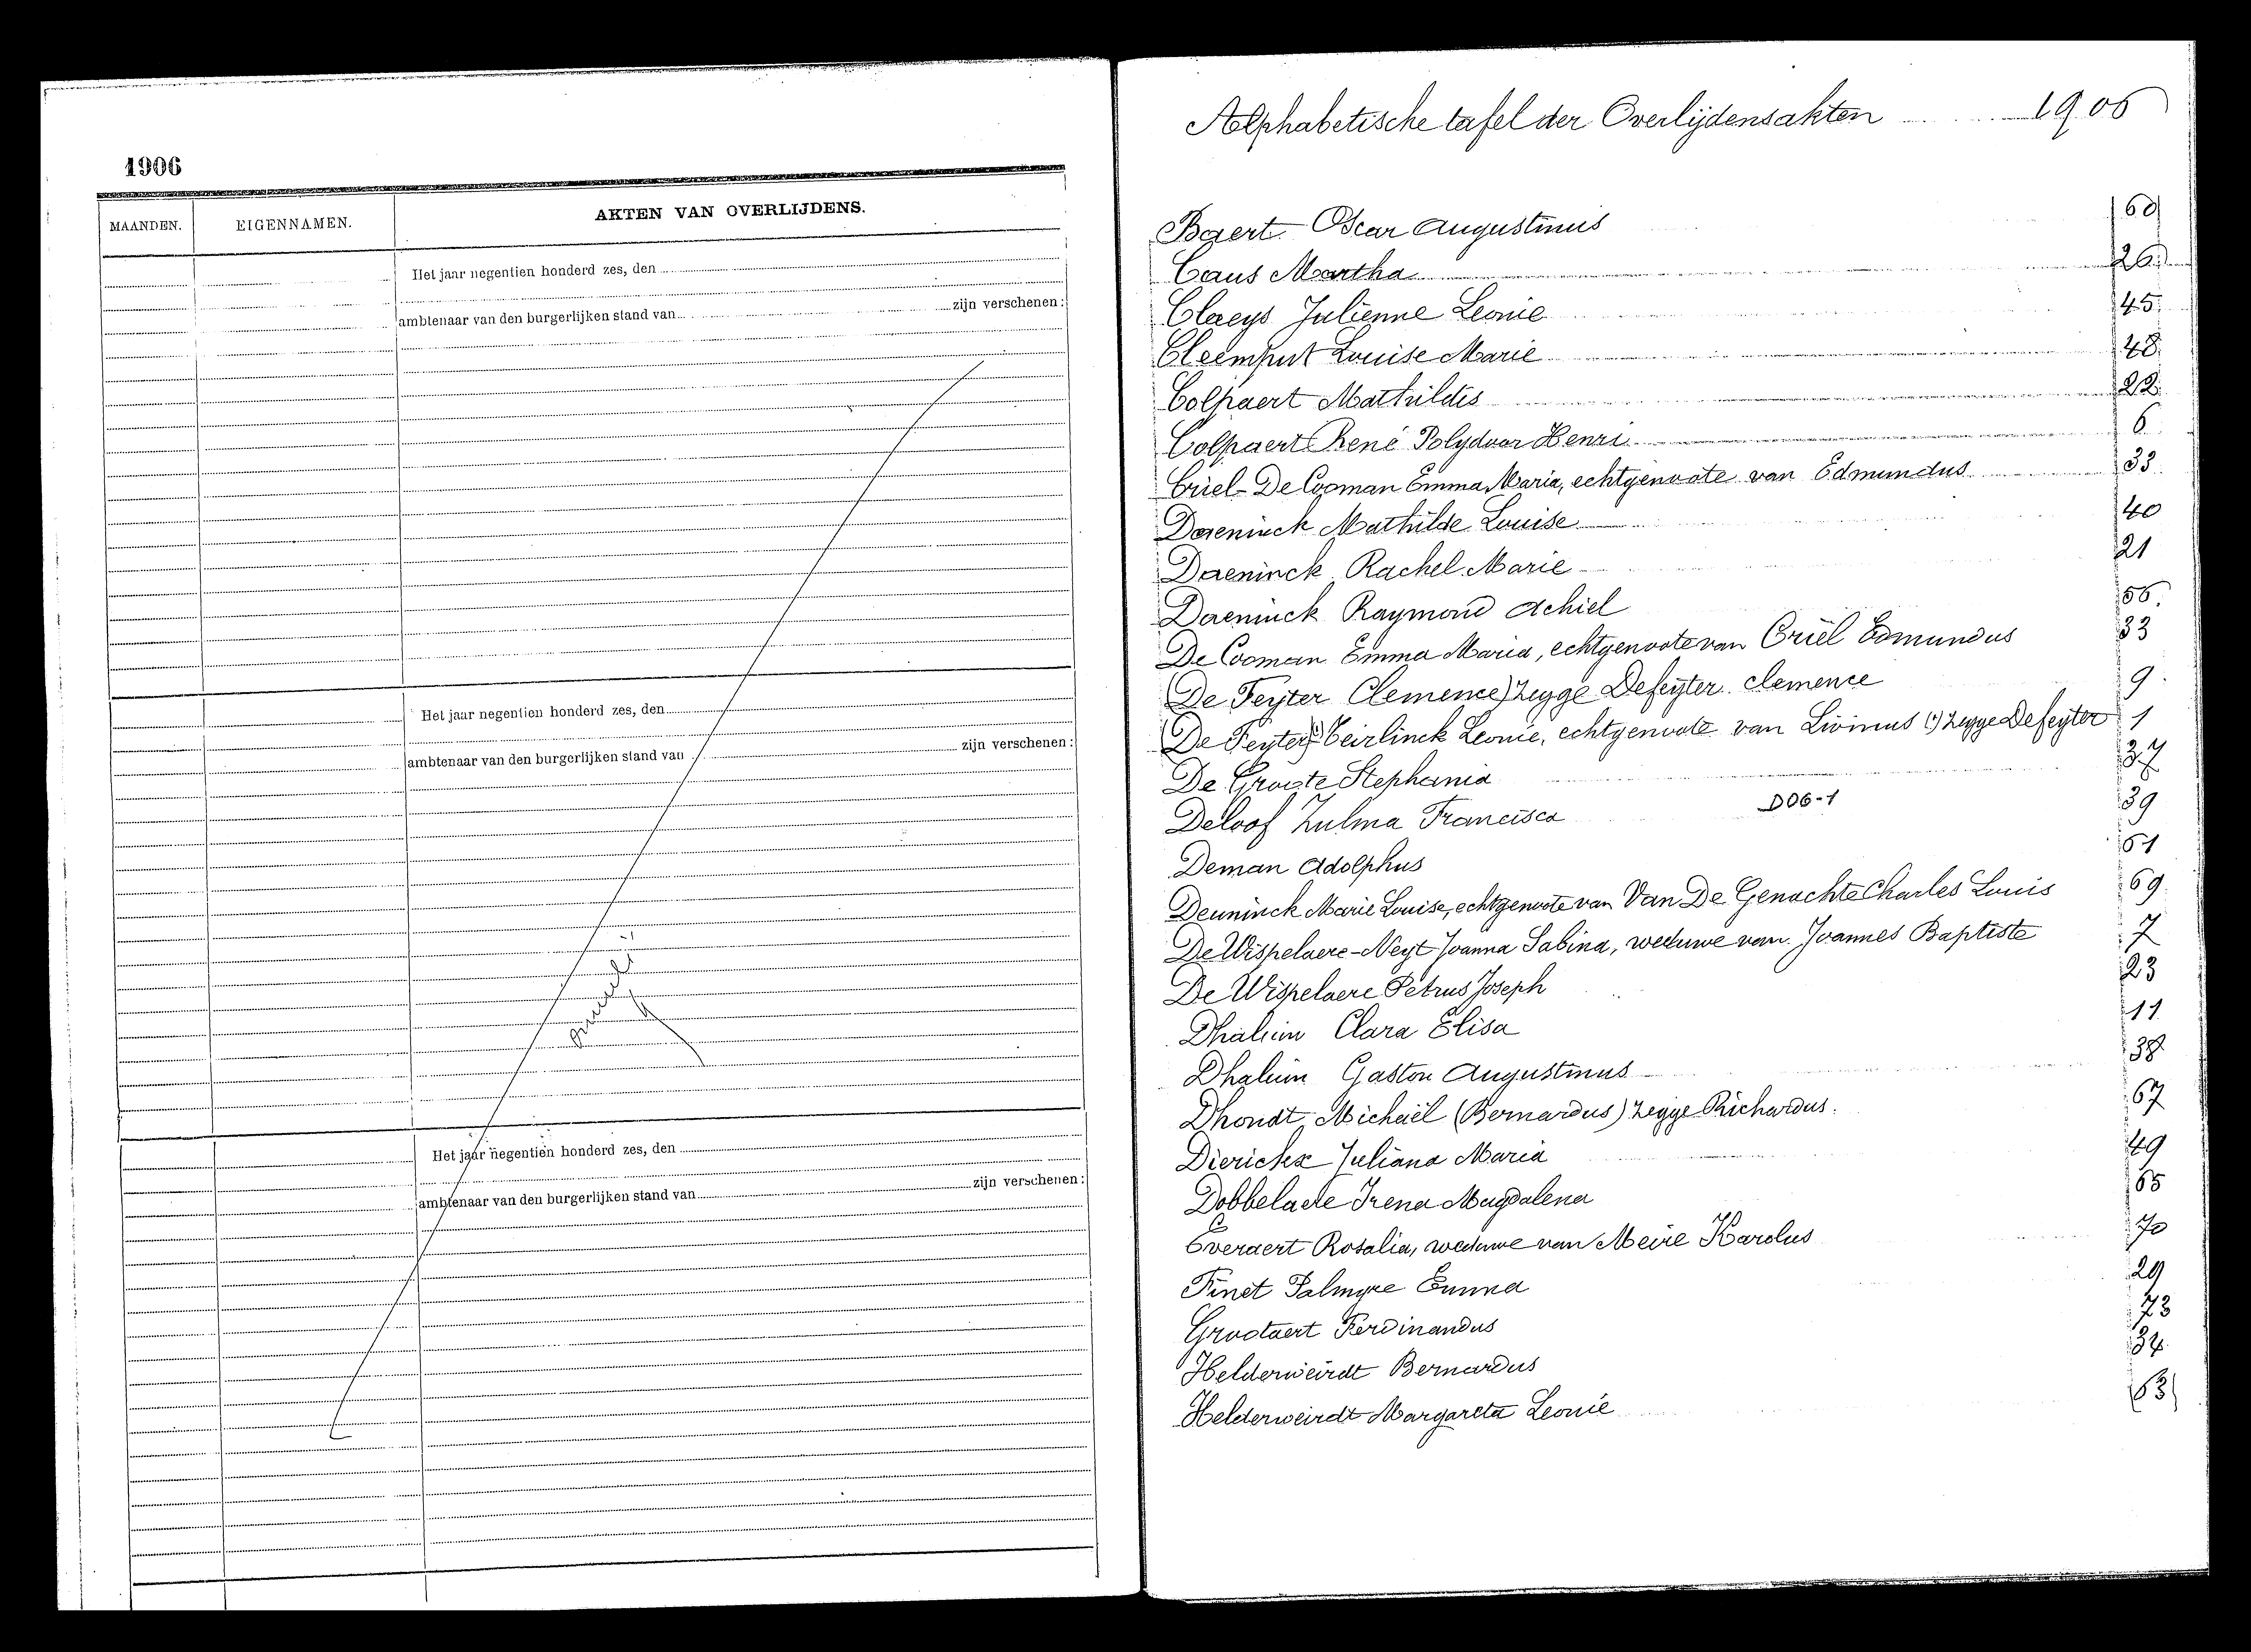 1906
MAANDEN.
EIGENNAMEN.
AKTEN VAN OVERLIJDENS.
Het jaar negentien honderd zes, den
ambtenaar van den burgerlijken stand van zijn verschenen:
Het jaar negentien honderd zes, den
ambtenaar van den burgerlijken stand van zijn verschenen:
Het jaar negentien honderd zes, den
ambtenaar van den burgerlijken stand van zijn verschenen:
Alphabetische tafel der Overlijdensakten 1906
Baert Oscar Augustinus 60
Caus Martha 26
Claeys Julienne Leonie 45
Cleemput Louise Marie 48
Colpaert Mathildis 22
Colpaert René Polydoor Henri 6
Criel-De Cooman Emma Maria, echtgenoote van Edmundus 33
Daeninck Mathilde Louise 40
Daeninck Rachel Marie 21
Daeninck Raymond Achiel 56
De Cooman Emma Maria, echtgenoote van Criel Edmundus 33
(De Feyter Clemence) zegge Defeyter Clemence 9
(De Feyter) Teirlinck Leonie, echtgenoote van Livinus (1) zegge Defeyter 1
De Groote Stephania 37
Deloof Zulma Francisca D06-1 39
Deman Adolphus 61
Deuninck Marie Louise, echtgenoote van Van De Genachte Charles Louis 69
De Wispelaere-Neyt Joanna Sabina, weduwe van Joannes Baptiste 7
De Wispelaere Petrus Joseph 23
Dhaluin Clara Elisa 11
Dhaluin Gaston Augustinus 38
Dhondt Michaël (Bernardus) zegge Richardus. 67
Dierickx Juliana Maria 49
Dobbelaere Irena Magdalena 65
Everaert Rosalia, weduwe van Meire Karolus 70
Finet Palmyre Emma 29
Grootaert Ferdinandus 73
Helderweirdt Bernardus 34
Helderweirdt Margareta Leonie 63